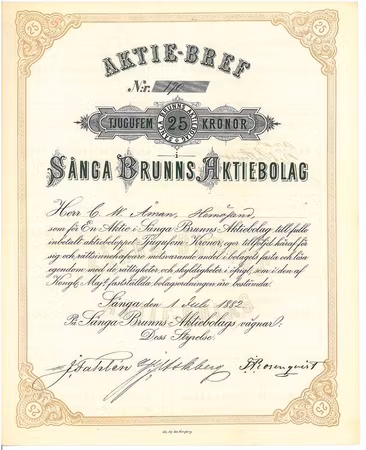 25 25
AKTIE-BREF
N:r. 170
SÅNGA BRUNNS AKTIEBOLAG
TJUGUFEM 25 KRONOR
i
SÅNGA BRUNNS AKTIEBOLAG
Herr C. W. Åman, Hernösand,
som för En Aktie i Sånga Brunns Aktiebolag till fullo
inbetalt aktiebeloppet Tjugufem Kronor, eger till följd häraf för
sig och rättsinnehafvare motsvarande andel i bolagets fasta och lösa
egendom med de rättigheter och skyldigheter i öfrigt, som i den af
Kongl. Maj:t fastställda bolagsordningen äro bestämda.
Sånga den 1 Juli 1882.
På Sånga Brunns Aktiebolags vägnar:
Dess Styrelse.
J. Fahlén Stokberg Rosenqvist
25 25